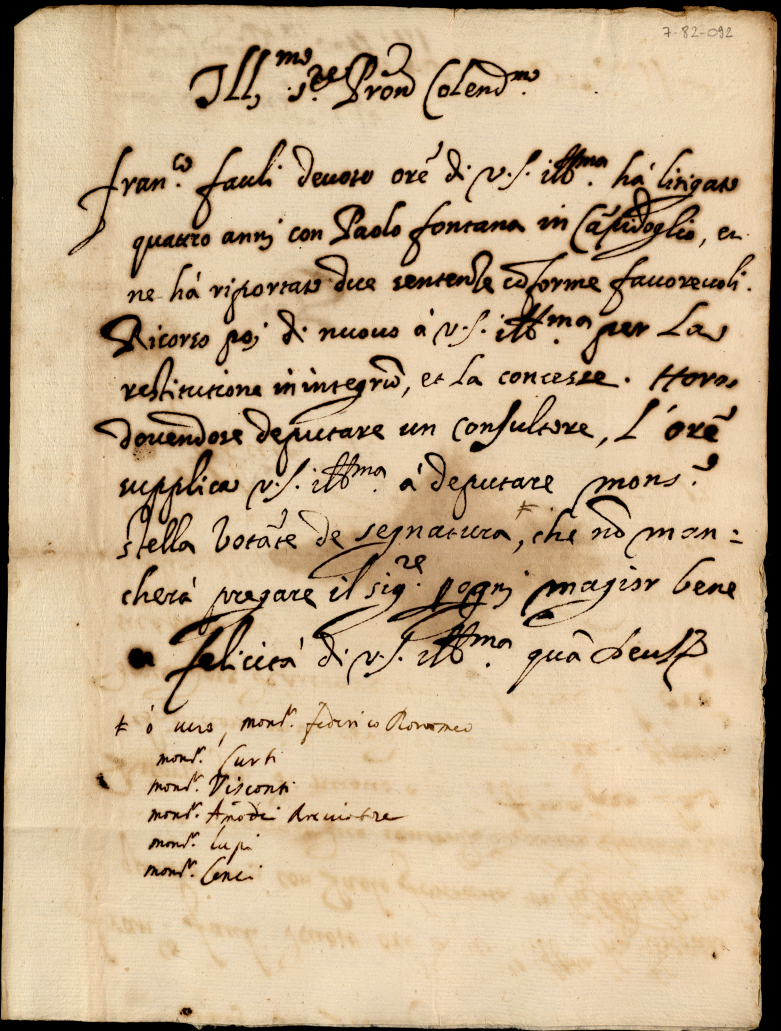 7-82-092
Ill.mo S.re Pron Colend.mo
Fran.co fauli deuoto orē di V.S. Ill.ma há litigato
quattro anni con Paolo fontana in Cāpidoglio, et
ne há riportato due sentenze cōforme fauoreuoli.
Ricorso poi di nuouo á V.S. Ill.ma per La
restitutione in integrū, et La concesse. Hora
douendose deputare un consultore, L'orē
supplica V.S. Ill.ma á deputare mons.r
stella Votāte de segnatura, ⧧ che nō man=
cherá pregare il sig.re p ogni magior bene
et felicitá di V.S. Ill.ma quā Deus
⧧ ó uero, mons.r federico Boromeo
mons.r Curti
mons.r Visconti
mons.r
mons.r lupi
mons.r Cenci